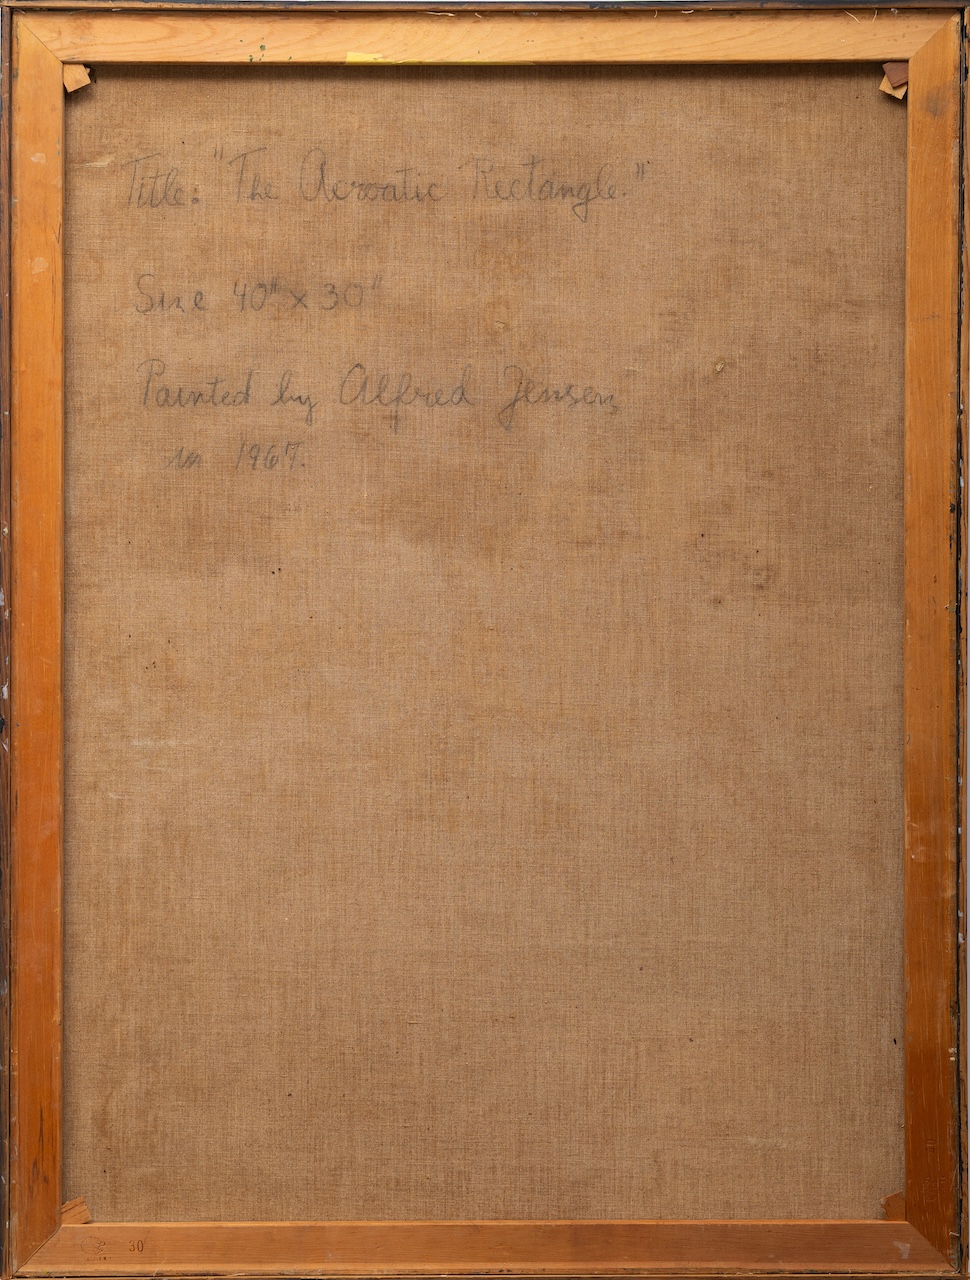 Title: "The Acroatic Rectangle."
Size 40" x 30"
Painted by Alfred Jensen
in 1967.
30